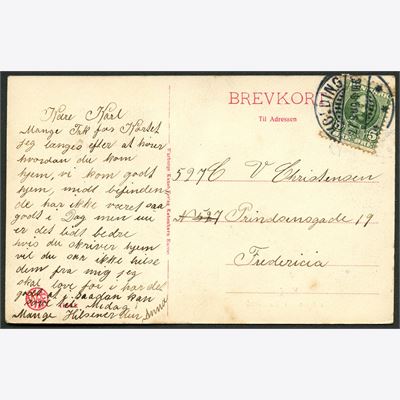 BREVKORT
Til Adressen
KOLDING
Kære Karl
Mange Tak for Kortet
jeg længes efter at hører
hvordan du kom
hjem, vi kom godt
hjem, mit befinden-
de har ikke været saa
godt i Dag men nu
er det lidt bedre
hvis du skriver hjem
vil du saa ikke hilse
dem fra mig jeg
skal love for i har det
godt at i saadan kan
Middag
Mange Hilsener din Anna
527C V Christensen
N 527 Prindsensgade 19
Fredericia